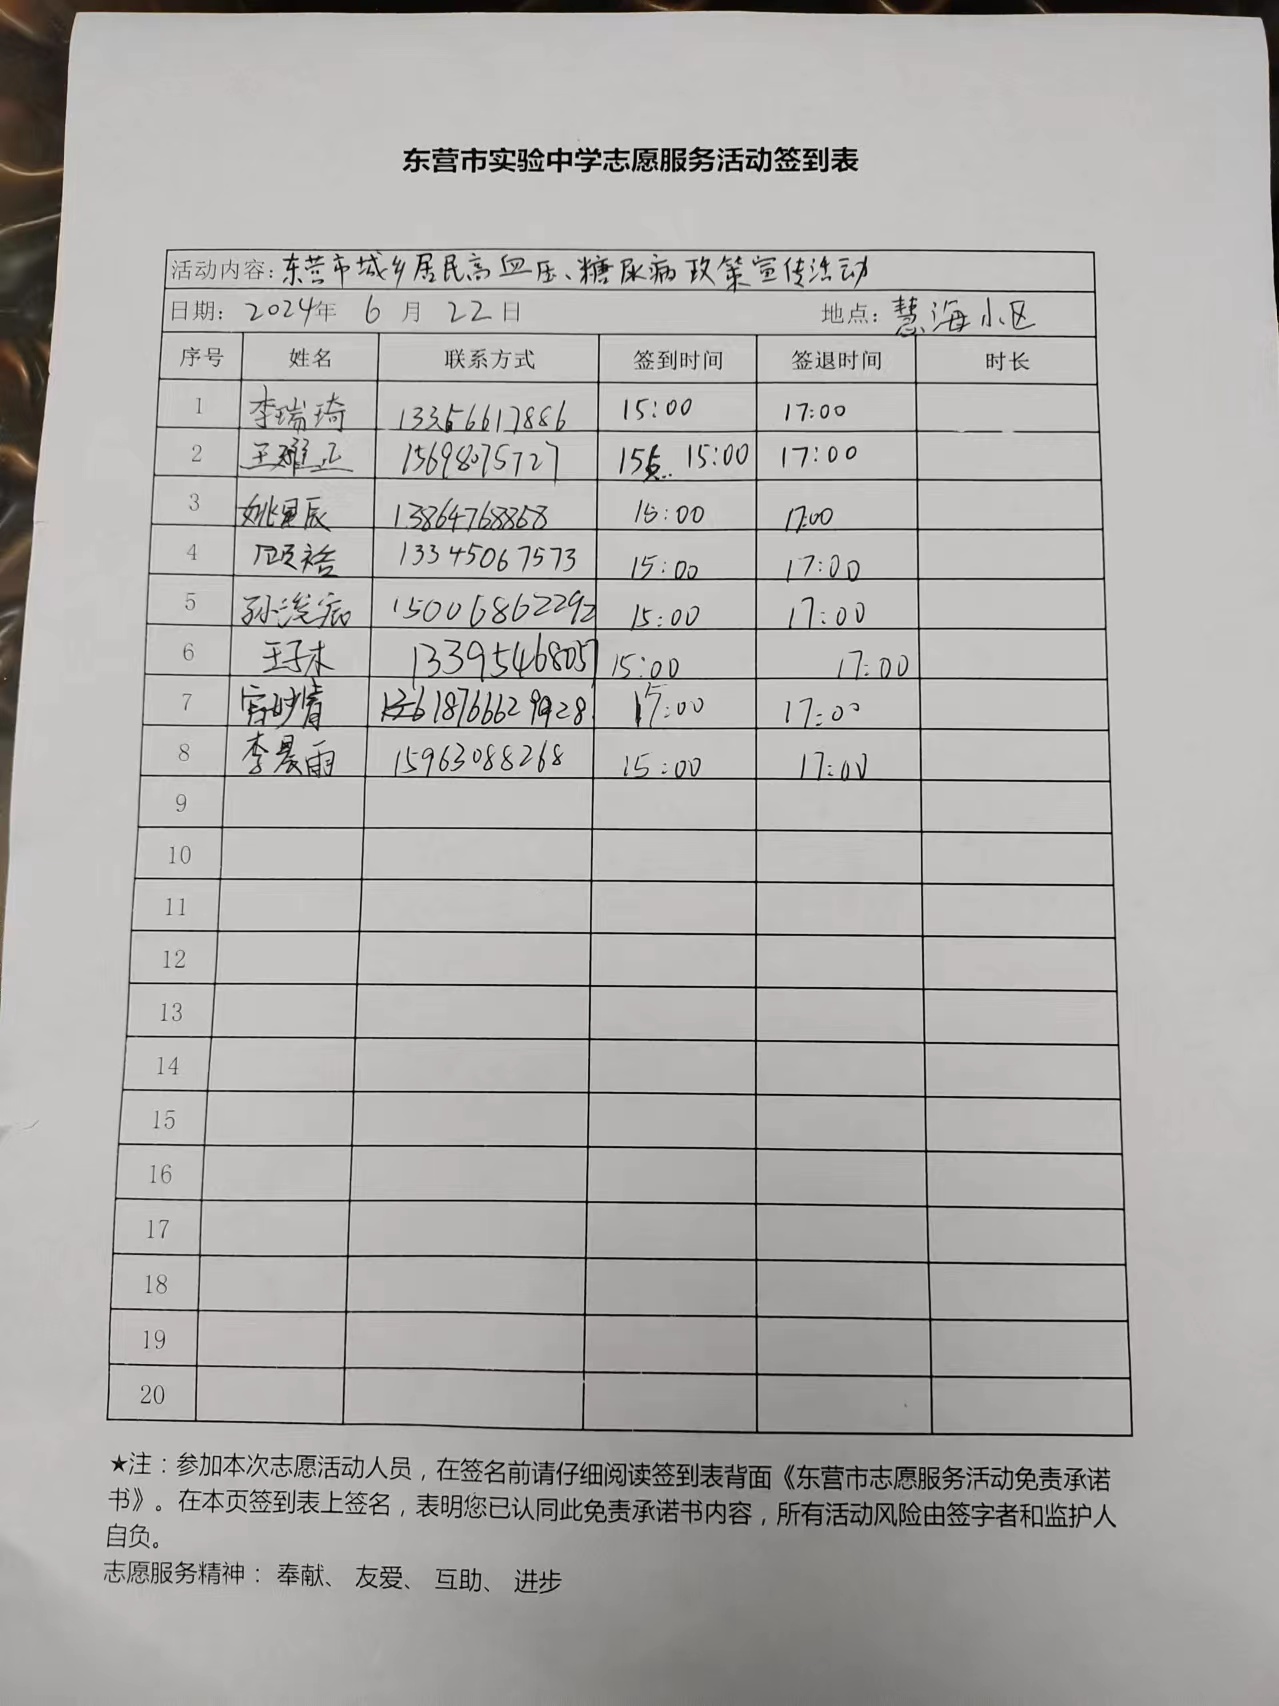 东营市实验中学志愿服务活动签到表
活动内容：东营市城乡居民高血压、糖尿病政策宣传活动
日期：2024年 6 月 22日 地点：慧海小区
序号 姓名 联系方式 签到时间 签退时间 时长
1 李瑞琦 13356617886 15:00 17:00
2 王 正 15698075727 15点 15:00 17:00
3 姚星辰 13864768868 15:00 17:00
4 顾 13345067573 15:00 17:00
5 孙浚宸 15006862292 15:00 17:00
6 王子木 1339546805 15:00 17:00
7 17:00 17:00
8 李晨雨 15963088268 15:00 17:00
9
10
11
12
13
14
15
16
17
18
19
20
★注：参加本次志愿活动人员，在签名前请仔细阅读签到表背面《东营市志愿服务活动免责承诺
书》。在本页签到表上签名，表明您已认同此免责承诺书内容，所有活动风险由签字者和监护人
自负。
志愿服务精神： 奉献、 友爱、 互助、 进步